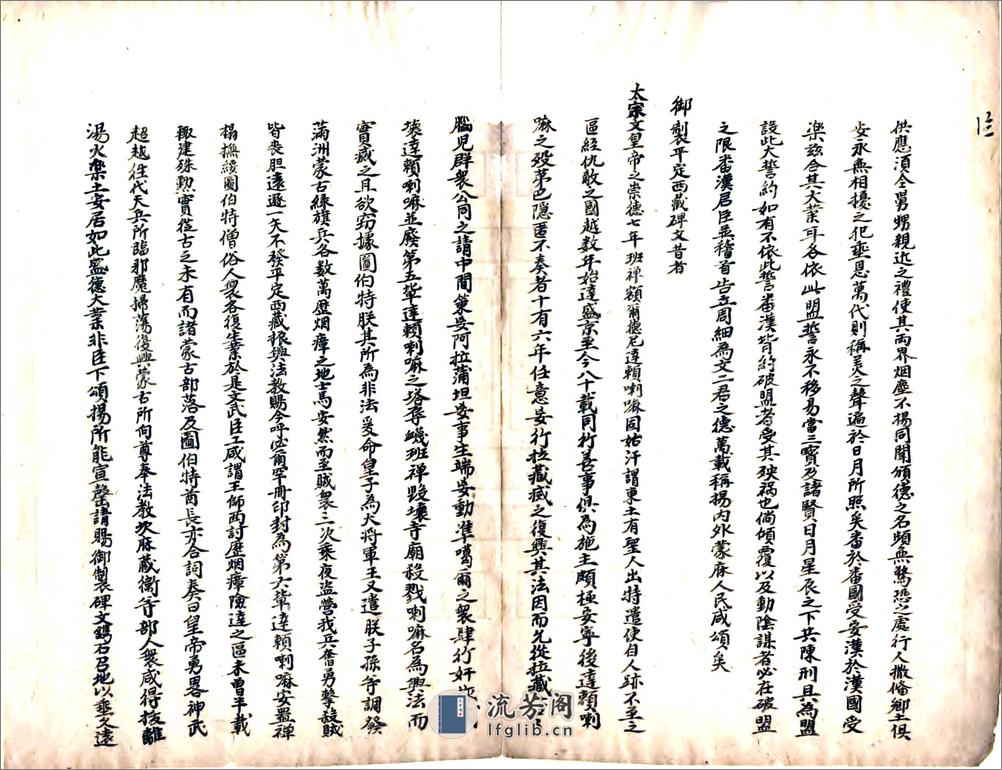 供應須令舅甥親近之禮使其兩界烟塵不揚同聞頌德之名頻無驚恐之處行人撤俻鄉土俱
安永無相擾之犯垂恩萬代則稱美之聲遍於日月所照矣番於番國受安漢於漢國受
樂玆合其大業耳各依此盟誓永不移易當三寳及諸賢日月星辰之下共陳刑具為盟
設此大誓約如有不依此誓番漢背約破盟者受其殃禍也倘傾覆以及動陰謀者必在破盟
之限番漢君臣並稽首告立周細為文二君之德萬載稱揚内外蒙庥人民咸頌矣
御製平定西藏碑文昔者
太宗文皇帝之崇德七年班禪額爾德尼達頼喇嘛固始汗謂東土有聖人出特遣使自人跡不至之
區經仇敵之國越数年始達盛京至今八十載同行善事俱為施主頗極安寧後達頼喇
嘛之歿第巴隱匿不奏者十有六年任意妄行拉藏滅之復興其法因而允從拉藏
腦児群衆公同之請中間策妄阿拉蒲坦妄事生端妄動準噶爾之衆肆行奸
壞達頼喇嘛並廢第五輩達頼喇嘛之塔辱蟣班禪毀壞寺廟殺戮喇嘛名為興法而
實滅之且欲窃據圖伯特朕其所為非法爰命皇子為大將軍王又遣朕子孫等調發
滿洲蒙古緑旗兵各数萬歴烟瘴之地士馬安然而至賊衆三次乘夜盗營我兵奮勇擊殺賊
皆喪胆遠遁一矢不發平定西藏振興法教賜今呼必爾罕冊印封為第六輩達頼喇嘛安置禪
榻撫綏圖伯特僧俗人衆各復生業於是文武臣工咸謂王師西討歴烟瘴險遠之區未曾半載
輙建殊勲實從古之未有而諸蒙古部落及圖伯特酋長亦合詞奏曰皇帝勇畧神武
超越往代天兵所臨邪魔掃蕩復興蒙古所向尊奉法教次庥藏衞等部人衆咸得拔離
湯火樂土安居如此盛德大業非臣下頌揚所能宣罄請賜御製碑文鐫石召地以垂久遠
流芳阁
lfglib.cn